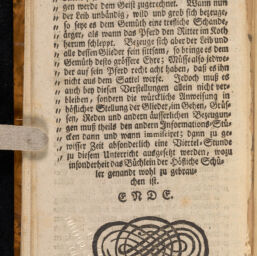 gen werde dem Geist zugerechnet. Wann nun
" der Leib unbändig, wild und grob sich bezeuge,
" so setze es dem Gemüth eine trefliche Schande,
" ärger, als wann das Pferd den Ritter im Koth
" herum schleppt. Bezeuge sich aber der Leib und
" alle dessen Glieder fein sittsam, so bringe es dem
" Gemüth desto grössere Ehre; Müsse also jedwe-
" der auf sein Pferd recht acht haben, daß es ihn
" nicht aus dem Sattel werfe. Jedoch muß es
" auch bey diesen Vorstellungen allein nicht ver-
" bleiben, sondern die würckliche Anweisung in
" höflicher Stellung der Glieder, im Gehen, Grüs-
" sen, Reden und andern äusserlichen Bezeugun-
" gen muß theils den andern Informations-Stü-
" cken dann und wann immisciret; dann zu ge-
" wisser Zeit absonderlich eine Viertel-Stunde
" zu diesem Unterricht ausgesetzt werden, wozu
insonderheit das Büchlein der Höfliche Schü-
ler genandt wohl zu gebrau-
chen ist.
ENDE.